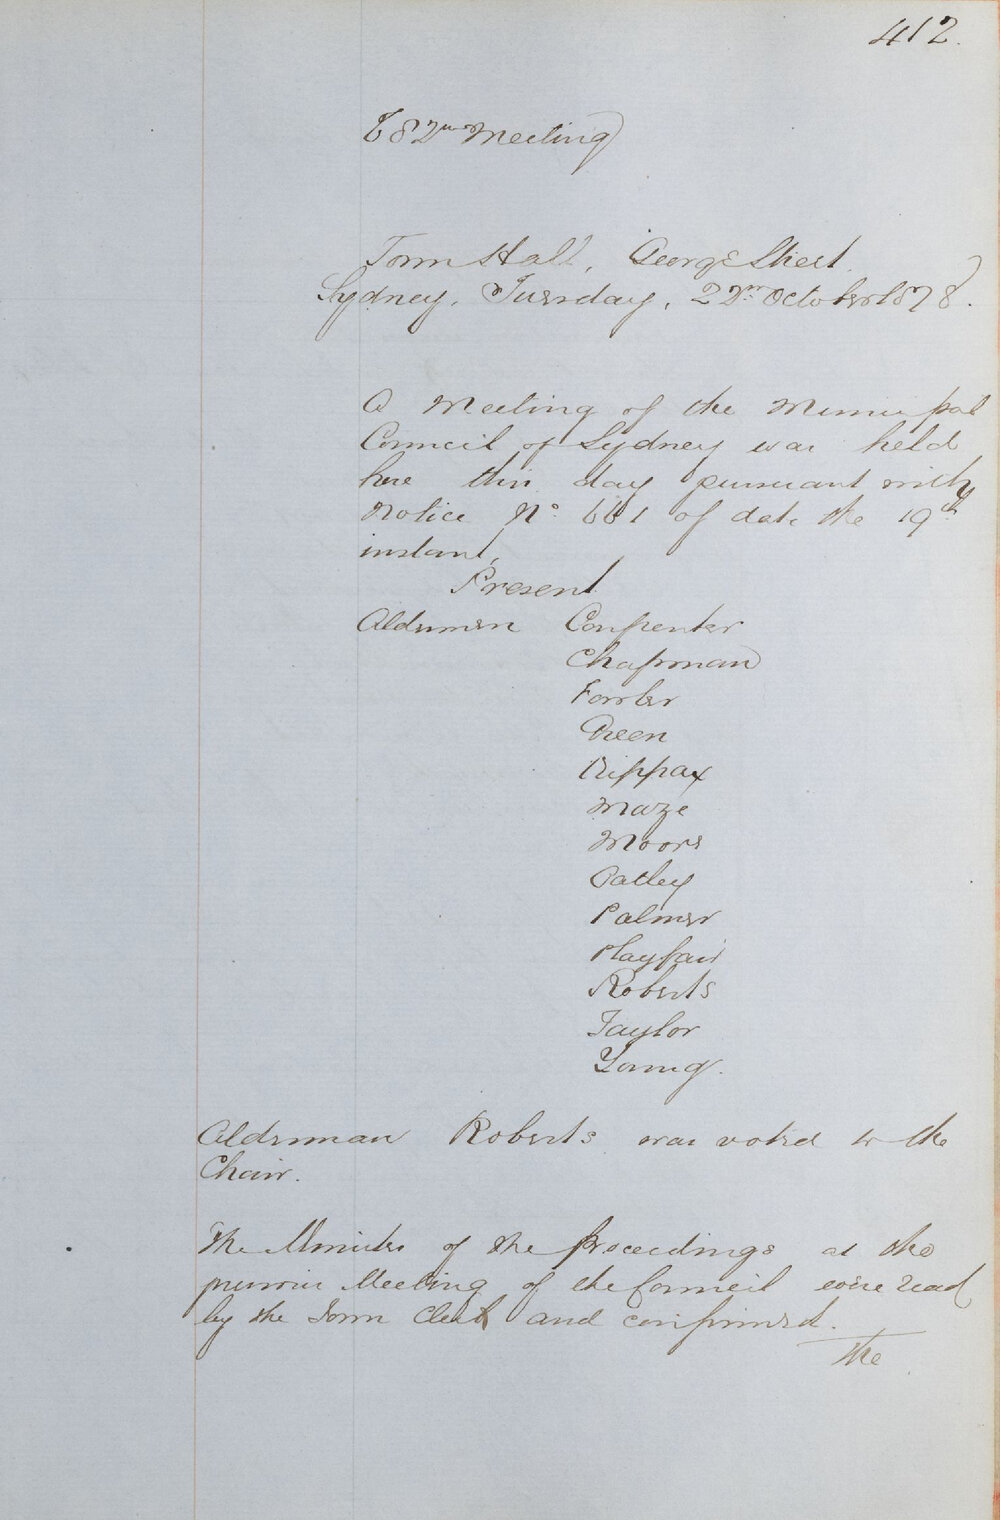 412.
682nd Meeting
Town Hall, George Street.
Sydney, Tuesday, 22nd October 1878.
A Meeting of the Municipal
Council of Sydney was held
here this day pursuant with
Notice No. 661 of date the 19th
instant,
Present
Aldermen Carpenter
Chapman
Fowler
Green
Kippax
Maze
Moore
Oatley
Palmer
Playfair
Roberts
Taylor
Young.
Alderman Roberts was voted to the
Chair.
The Minutes of the Proceedings at the
previous Meeting of the Council were read
by the Town Clerk and confirmed.
The